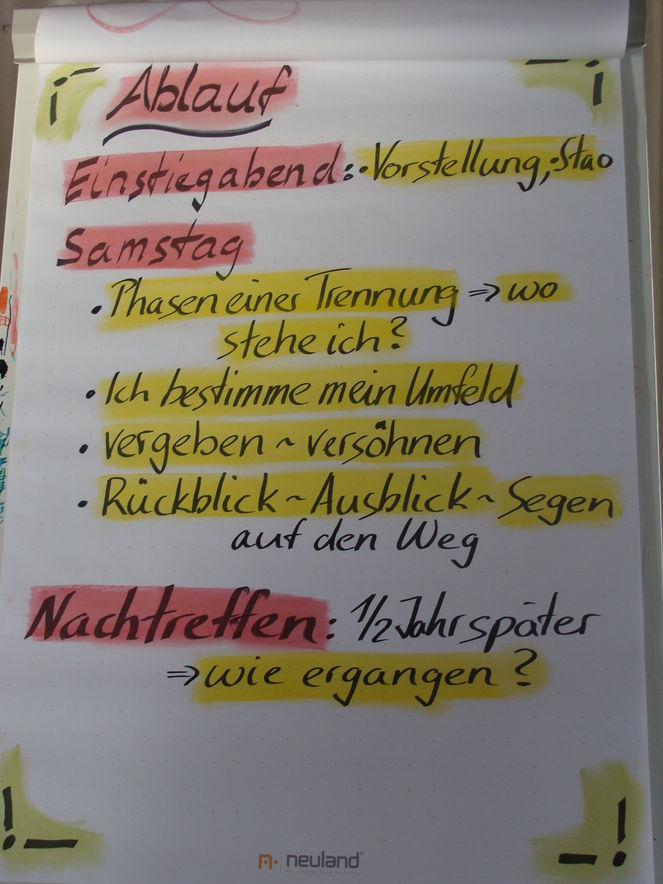 Ablauf
Einstiegabend: • Vorstellung, • Stao
Samstag
• Phasen einer Trennung => wo
stehe ich?
• Ich bestimme mein Umfeld
• vergeben ~ versöhnen
• Rückblick ~ Ausblick ~ Segen
auf den Weg
Nachtreffen: 1/2 Jahr später
=> wie ergangen?
neuland